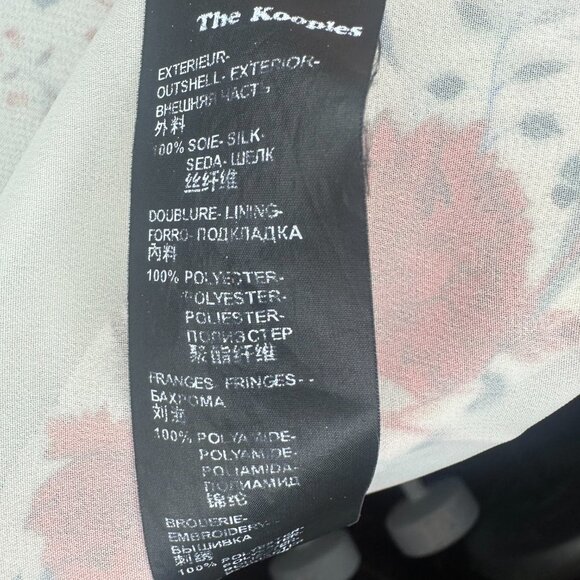 The Kooples
EXTERIEUR-
OUTSHELL- EXTERIOR-
ВНЕШНЯЯ ЧАСТЬ
外料
100% SOIE- SILK-
SEDA- ШЕЛК
丝纤维
DOUBLURE- LINING-
FORRO- ПОДКЛАДКА
内料
100% POLYESTER-
POLYESTER-
POLIESTER-
ПОЛИЭСТЕР
聚酯纤维
FRANGES FRINGES--
БАХРОМА
刘海
100% POLYAMIDE-
POLYAMIDE-
POLIAMIDA-
ПОЛИАМИД
锦纶
BRODERIE-
EMBROIDERY-
ВЫШИВКА
刺绣
100% POLYESTER-